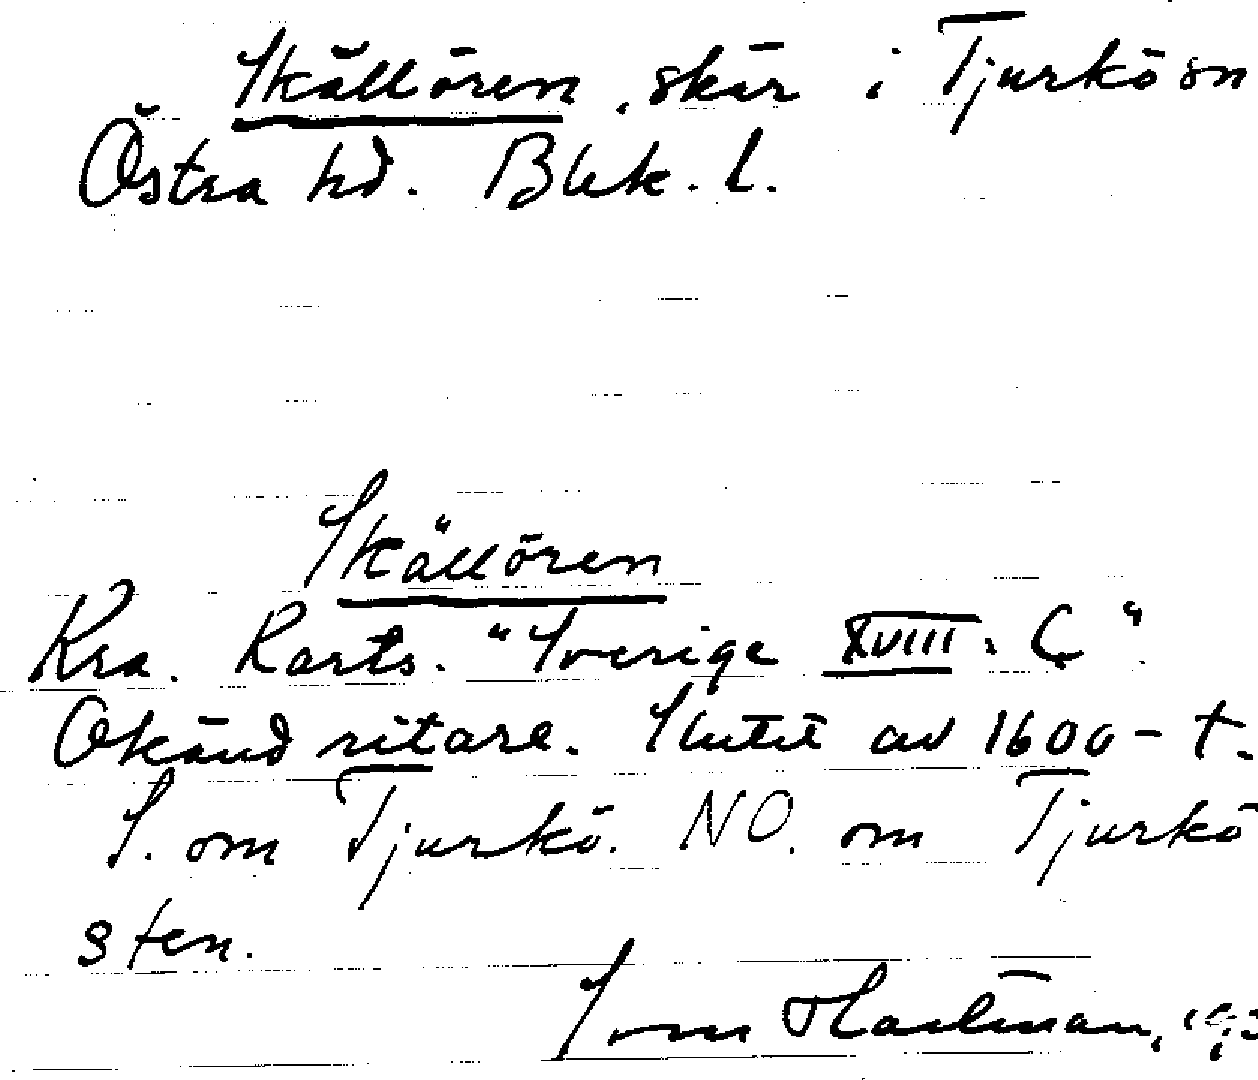 Skällören, skär i Tjurkö sn
Östra hd. Blek. l.
Skällören
Kra. Karts. "Sverige XVIII: C"
Okänd ritare. Slutet av 1600-t.
S. om Tjurkö. NO. om Tjurkö
sten.
Hartman,